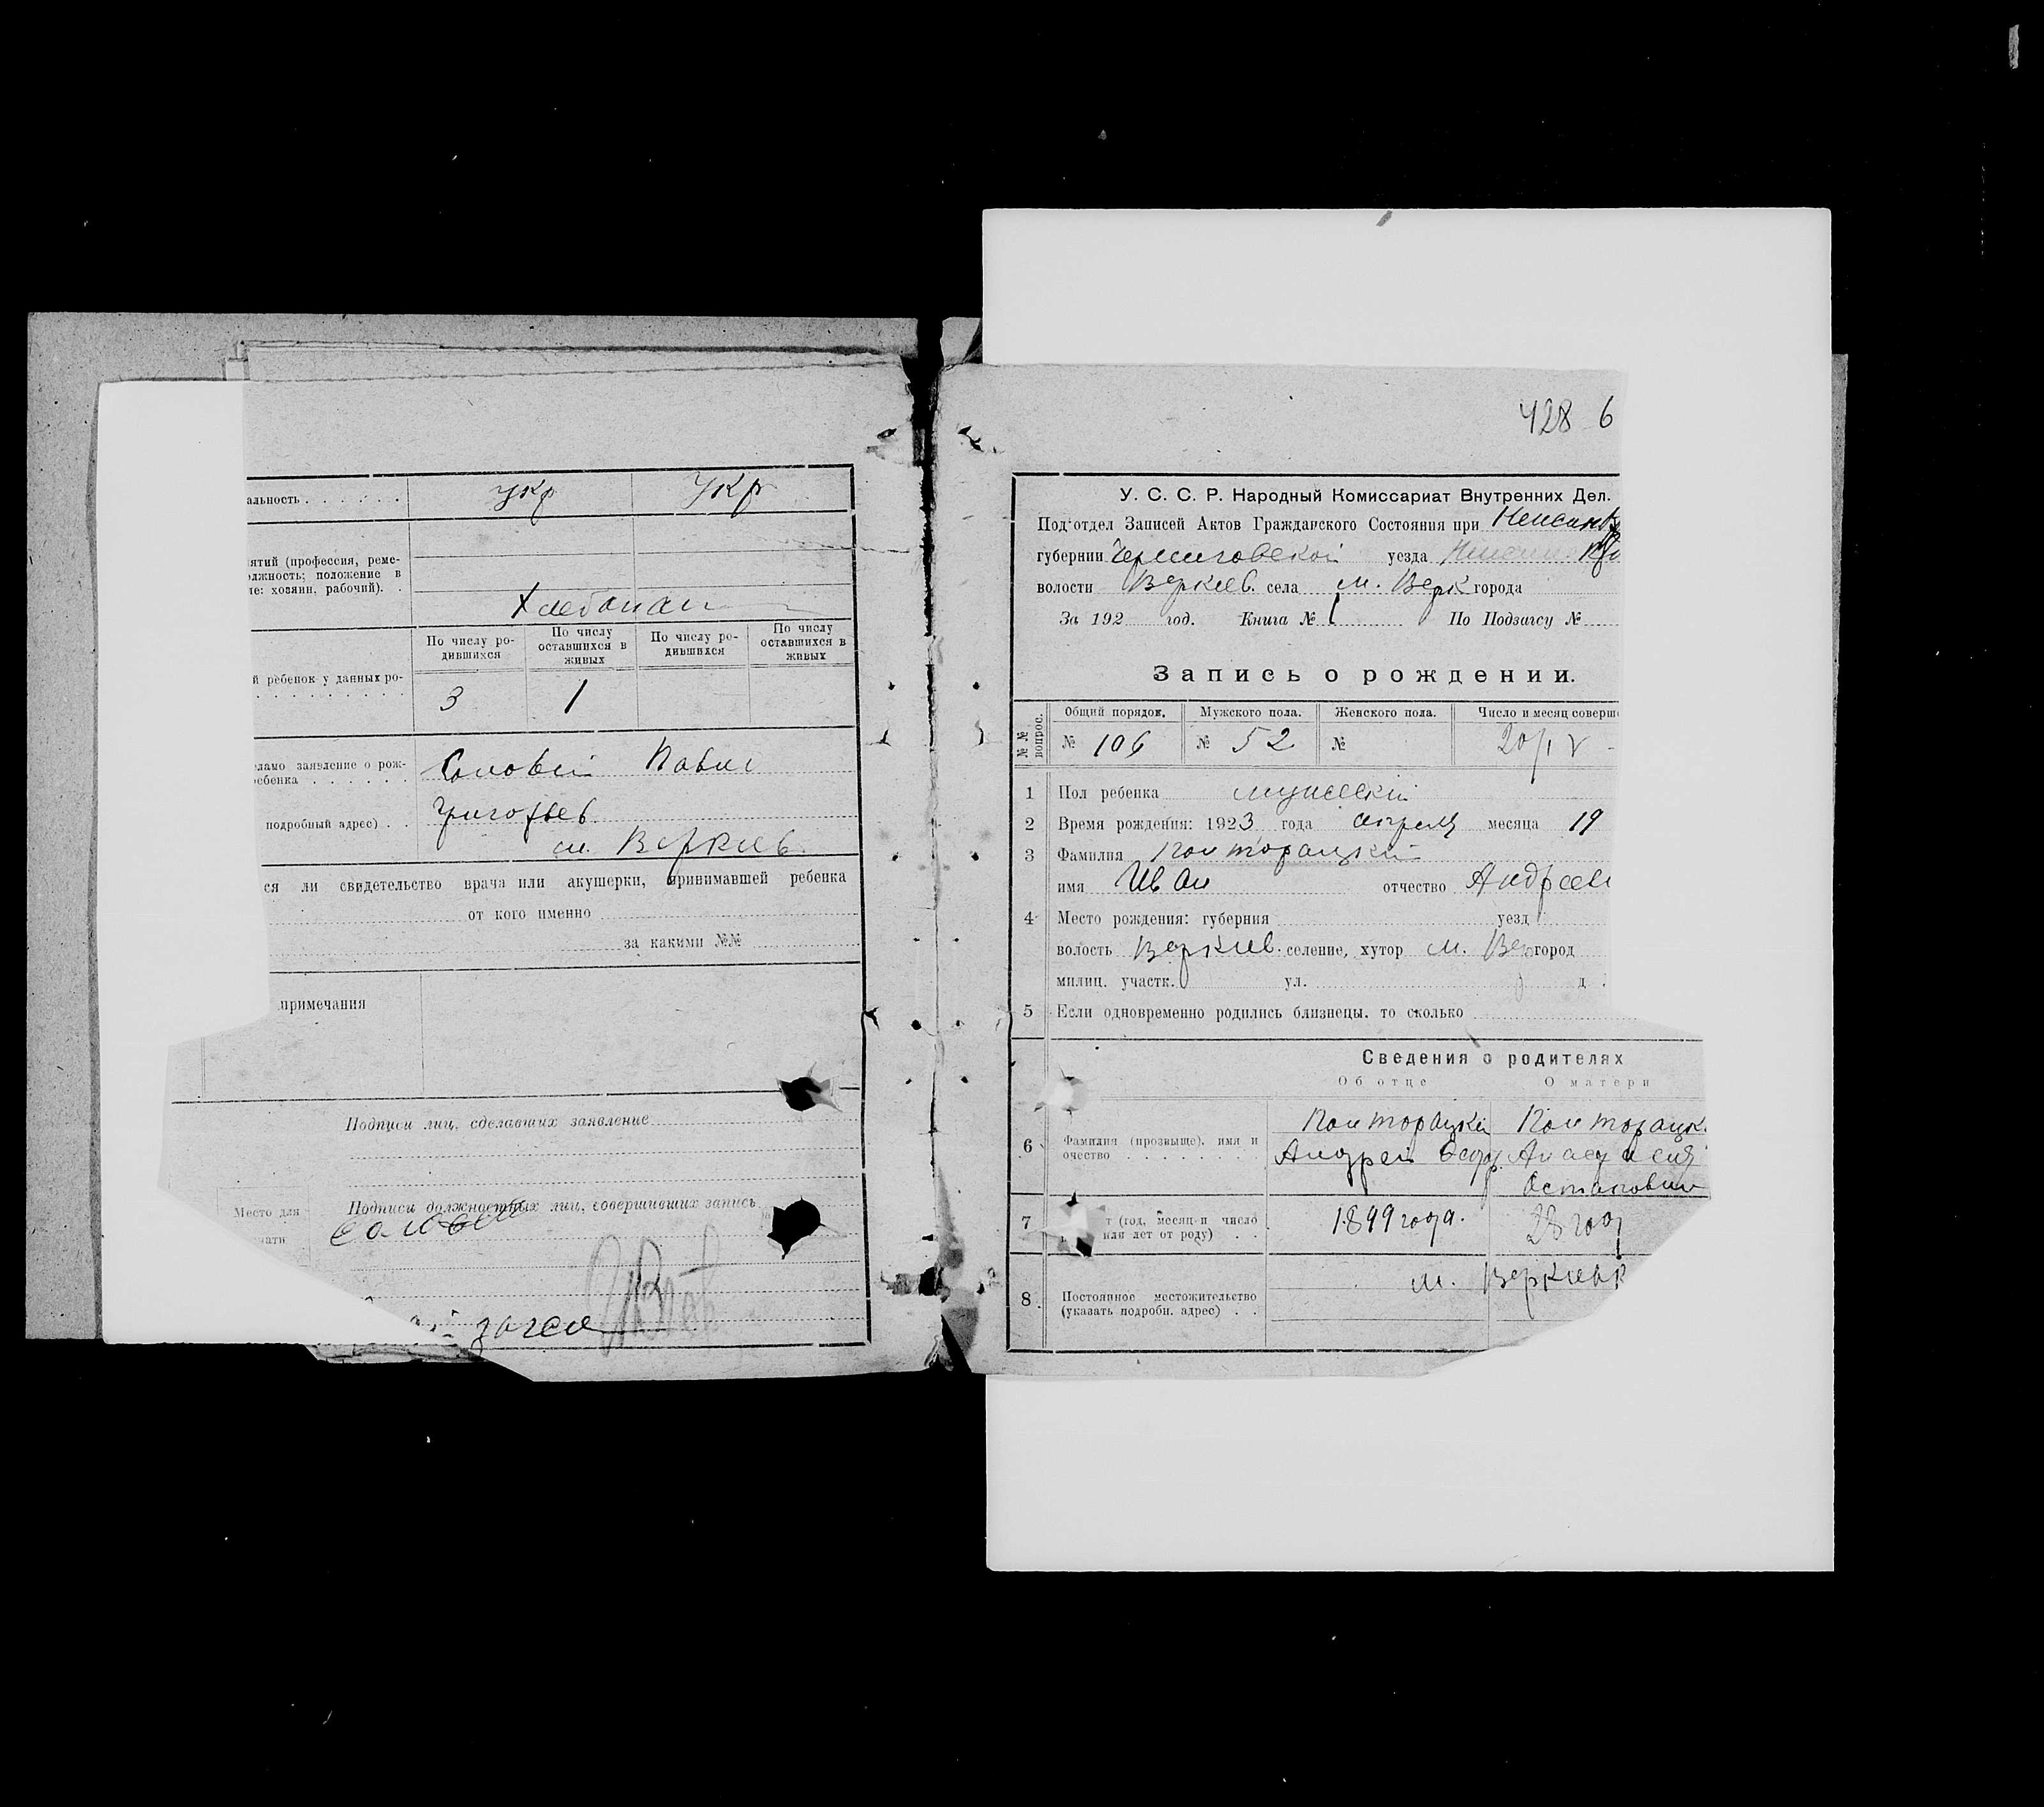 альность . . . . . . укр укр
ятий (профессия, реме-
олжность; положение в
ле: хозяин, рабочий). .
По числу ро-
дившихся
По числу
оставшихся в
живых
По числу ро-
дившихся
По числу
оставшихся в
живых
й ребенок у данных ро-
3 1
елано заявление о рож-
ебенка . . . . . . Соловей Павел
подробный адрес) . . Григорьев
м. Веркиев
ся ли свидетельство врача или акушерки, принимавшей ребенка
от кого именно
за какими №№
примечания
Подписи лиц, сделавших заявление
Место для
чати
Подписи должностных лиц, совершивших запись
428 6
У. С. С. Р. Народный Комиссариат Внутренних Дел.
Под'отдел Записей Актов Гражданского Состояния при
губернии Черниговской уезда
волости Веркиев. села м. Верк города
За 192 год. Книга № 1 По Подзагсу №
Запись о рождении.
№ № вопрос.
Общий порядок. Мужского пола. Женского пола. Число и месяц соверш
№ 106 № 52 № 20/IV
1 Пол ребенка мужеский
2 Время рождения: 1923 года апреля месяца 19
3 Фамилия Полторацкий
имя Иван отчество Андреев
4 Место рождения: губерния уезд
волость Веркиев. селение, хутор м. Вер город
милиц. участк. ул. д .
5 Если одновременно родились близнецы. то сколько
Сведения о родителях
Об отце О матери
6 Фамилия (прозвыще), имя и
очество . . . . . . . .
Полторацкий
Андрей Федор.
Полторацк.
Анастасия
Остаповна
7 т (год, месяц и число
или лет от роду) . . 1899 года. 28 год
8. Постоянное местожительство
(указать подробн. адрес) . .
м. Веркиевк